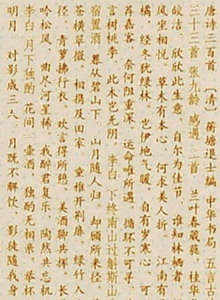 唐诗三百首 [清] 蘅塘退士编 中华书局
三十三首 张九龄 感遇二首 其一 兰叶春葳蕤 桂华
皎洁 欣欣此生意 自尔为佳节 谁知林栖
风坐相悦 草木有本心 何求美人折 江南有
经冬犹绿林 岂伊地气暖 自有岁寒心 可
荐嘉客 奈何阻重深 运命唯所遇 循环不可
言树桃李 此木岂无阴 李白 下终南山过斛斯山
宿置酒 暮从碧山下 山月随人归 却顾所来径
苍横翠微 相携及田家 童稚开荆扉 绿竹入
径 青萝拂行衣 欢言得所憩 美酒聊共挥 长
吟松风 曲尽河星稀 我醉君复乐 陶然共忘机
李白 月下独酌 花间一壶酒 独酌无相亲 举杯
明 对影成三人 月既不解饮 影徒随我